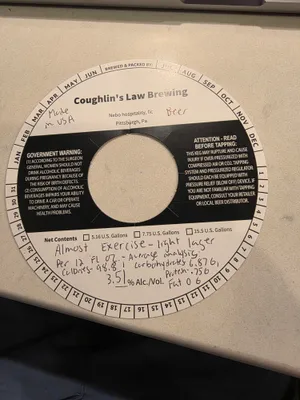 JAN FEB MAR APR MAY JUN BREWED & PACKED BY: AUG SEP OCT NOV DEC
Coughlin's Law Brewing
Made in USA
Beer
Pittsburgh, Pa
GOVERNMENT WARNING:
(1) ACCORDING TO THE SURGEON
GENERAL, WOMEN SHOULD NOT
DRINK ALCOHOLIC BEVERAGES
DURING PREGNANCY BECAUSE OF
THE RISK OF BIRTH DEFECTS.
(2) CONSUMPTION OF ALCOHOLIC
BEVERAGES IMPAIRS YOUR ABILITY
TO DRIVE A CAR OR OPERATE
MACHINERY, AND MAY CAUSE
HEALTH PROBLEMS.
ATTENTION - READ
BEFORE TAPPING:
THIS KEG MAY RUPTURE AND CAUSE
INJURY IF OVER PRESSURIZED WITH
COMPRESSED AIR OR CO2. TAPPING
SYSTEM AND PRESSURE REGULATOR
SHOULD EACH BE EQUIPPED WITH
PRESSURE RELIEF
YOU ARE NOT FAMILIAR WITH TAPPING
EQUIPMENT, CONSULT YOUR RETAILER
OR LOCAL BEER DISTRIBUTOR.
Net Contents 5.16 U.S. Gallons 7.75 U.S. Gallons 15.5 U.S. Gallons
Almost Exercise - light lager
Per 12 Fl oz - average analysis
Calories - 98.8, carbohydrates 6.87G,
Protein .75G
3.5 % Alc./Vol. Fat 0 G